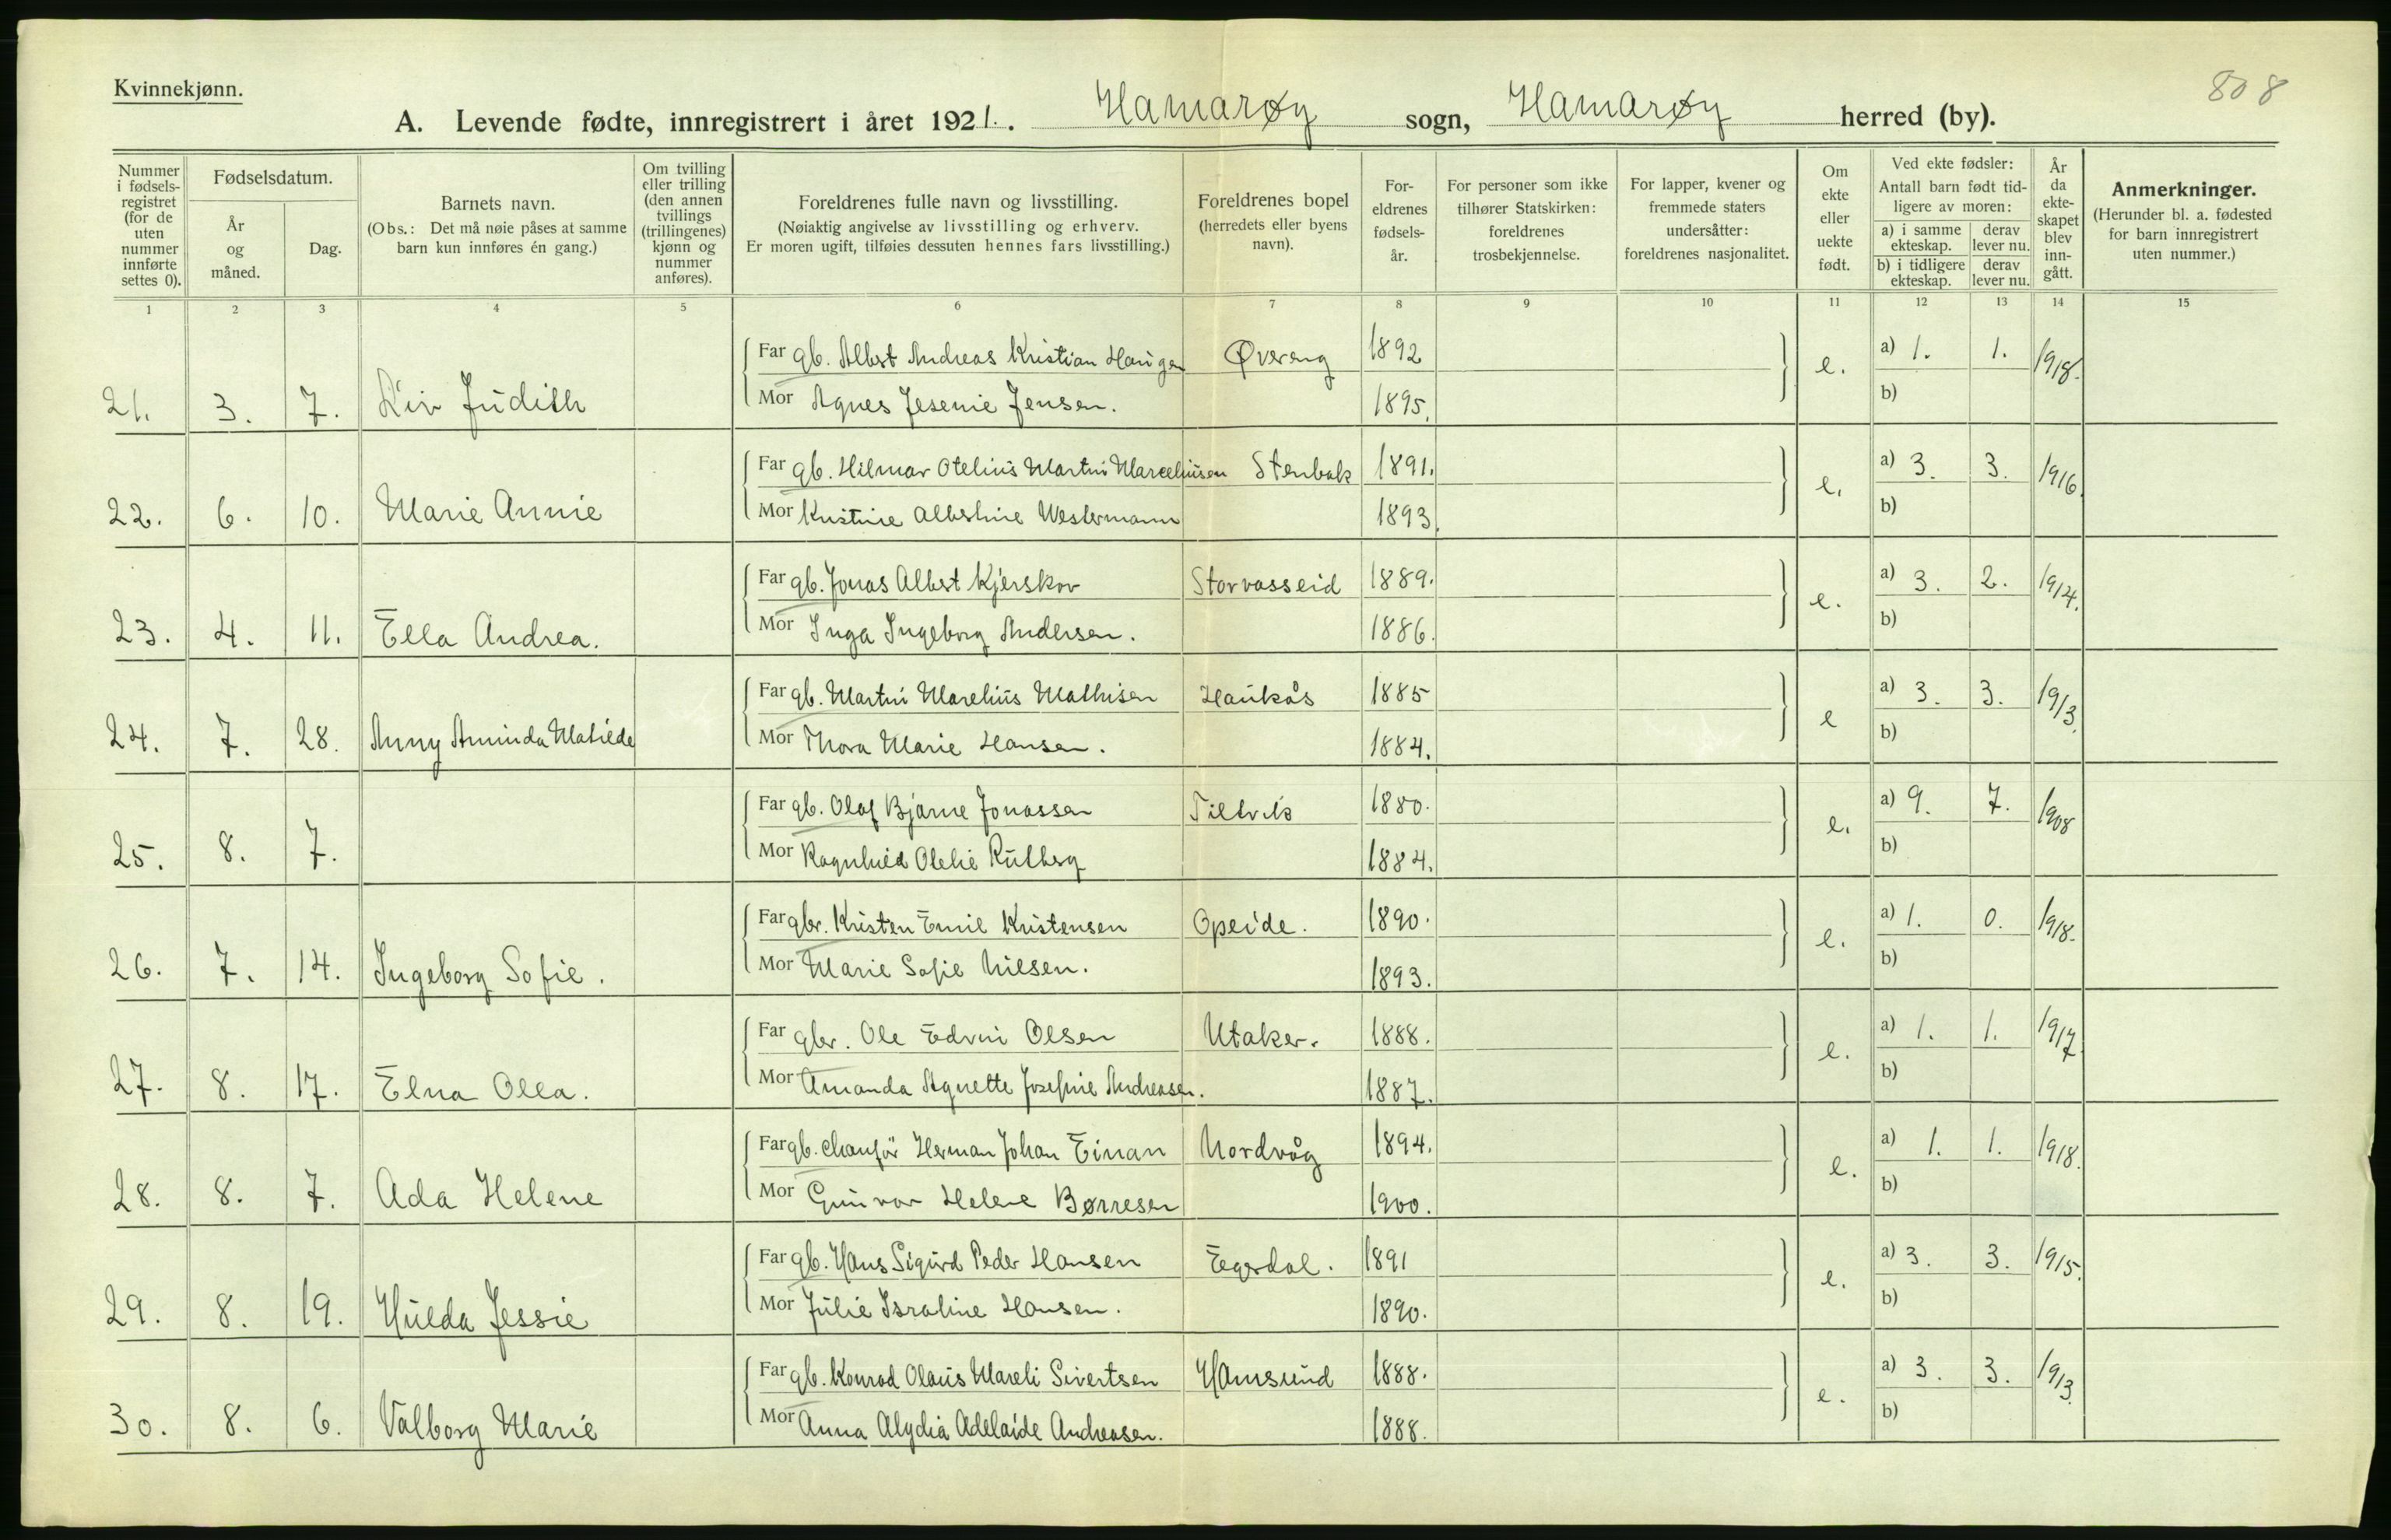 Kvinnekjønn.
808
A. Levende fødte, innregistrert i året 1921. Hamarøy sogn, Hamarøy herred (by).
Nummer i fødselsregistret (for de uten nummer innførte settes 0).
Fødselsdatum.
År og måned.
Dag.
Barnets navn.
(Obs.: Det må nøie påses at samme barn kun innføres én gang.)
Om tvilling eller trilling (den annen tvillings (trillingenes) kjønn og nummer anføres).
Foreldrenes fulle navn og livsstilling.
(Nøiaktig angivelse av livsstilling og erhverv.
Er moren ugift, tilføies dessuten hennes fars livsstilling.)
Foreldrenes bopel (herredets eller byens navn).
Foreldrenes fødselsår.
For personer som ikke tilhører Statskirken: foreldrenes trosbekjennelse.
For lapper, kvener og fremmede staters undersåtter: foreldrenes nasjonalitet.
Om ekte eller uekte født.
Ved ekte fødsler: Antall barn født tidligere av moren:
a) i samme ekteskap. derav lever nu.
b) i tidligere ekteskap. derav lever nu.
År da ekteskapet blev inngått.
Anmerkninger.
(Herunder bl. a. fødested for barn innregistrert uten nummer.)
1 2 3 4 5 6 7 8 9 10 11 12 13 14 15
Far gb. Albert Andreas Kristian Haugen Øvereng 1892 a) 1. 1. 1918.
21. 3. 7. Liv Judith Mor Agnes Jesenie Jensen. 1895. e. b)
Far gb. Hilmar Otelius Martin Marceliusen Stenbak 1891. a) 3. 3. 1916.
22. 6. 10. Marie Annie Mor Kristine Albertine Westermann 1893. e. b)
Far gb. Jonas Albert Kjerskov Storvasseid 1889. a) 3. 2. 1914.
23. 4. 11. Ella Andrea. Mor Inga Ingeborg Andersen. 1886. e. b)
Far gb. Martin Marelius Mathisen Haukås 1885 a) 3. 3. 1913.
24. 7. 28. Anny Aminda Matilde Mor Thora Marie Hansen. 1884. e b)
Far gb. Olaf Bjarne Jonassen Tiltvik 1880. a) 9. 7. 1908
25. 8. 7. Mor Ragnhild Olelie Rutberg 1884. e. b)
Far gbr. Kristen Emil Kristensen Opeide. 1890. a) 1. 0. 1918.
26. 7. 14. Ingeborg Sofie. Mor Marie Sofie Nilsen. 1893. e. b)
Far gbr. Ole Edvin Olsen Utaker. 1888. a) 1. 1. 1917
27. 8. 17. Elna Olla. Mor Amanda Agnette Josefine Andreasen. 1887. e. b)
Far gb. chaufør Herman Johan Einan Nordvåg 1894. a) 1. 1. 1918.
28. 8. 7. Ada Helene Mor Gunvor Helene Børresen 1900. e. b)
Far gb. Hans Sigurd Peder Hansen Egerdal. 1891 a) 3. 3. 1915.
29. 8. 19. Hulda Jessie Mor Julie Israline Hansen. 1890. e. b)
Far gb. Konrad Olaus Mareli Sivertsen Hamsund 1888. a) 3. 3. 1913.
30. 8. 6. Valborg Marie Mor Anna Alydia Adelaide Andreasen. 1888. e. b)